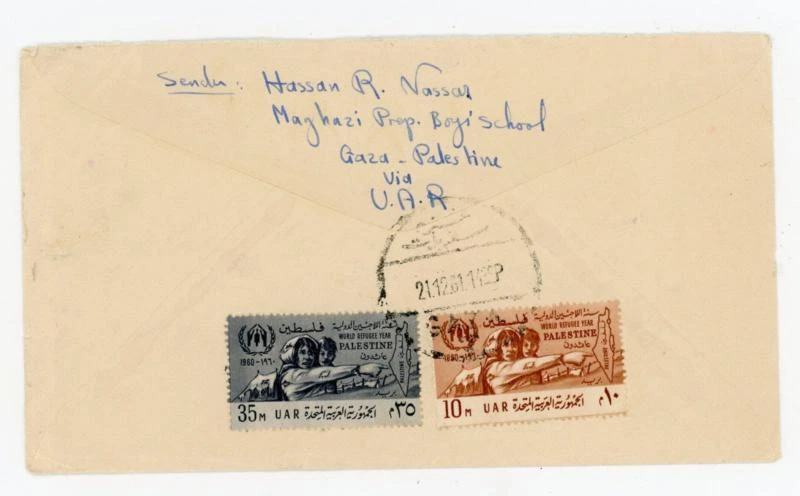 Sender: Hassan R. Nassar
Maghazi Prep. Boys' School
Gaza - Palestine
Via
U.A.R
21.12.61.1
فلسطين
سنة اللاجئين الدولية
WORLD REFUGEE YEAR
PALESTINE
عائدون
1960-١٩٦٠
PALESTINE
بريد
35 M UAR الجمهورية العربية المتحدة ٣٥ م
فلسطين
سنة اللاجئين الدولية
WORLD REFUGEE YEAR
PALESTINE
عائدون
1960-١٩٦٠
PALESTINE
بريد
10 M UAR الجمهورية العربية المتحدة ١٠ م